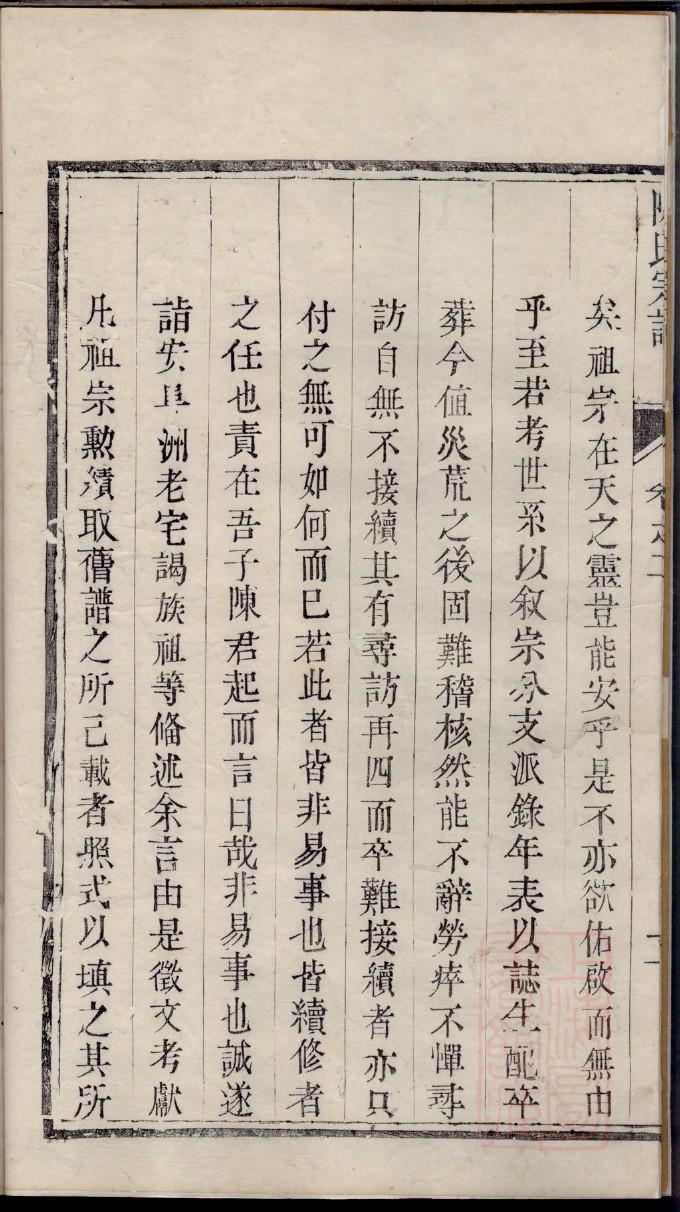 陳氏宗譜
卷之二
矣祖宗在天之靈豈能安乎是不亦欲佑啟而無由
乎至若考世系以叙宗分支派錄年表以誌生配卒
葬今值災荒之後固難稽核然能不辭勞瘁不憚尋
訪自無不接續其有尋訪再四而卒難接續者亦只
付之無可如何而已若此者皆非易事也皆續修者
之任也責在吾子陳君起而言曰哉非易事也誠遂
詣安阜洲老宅謁族祖等偹述余言由是徵文考獻
凡祖宗勲績取舊譜之所已載者照式以塡之其所